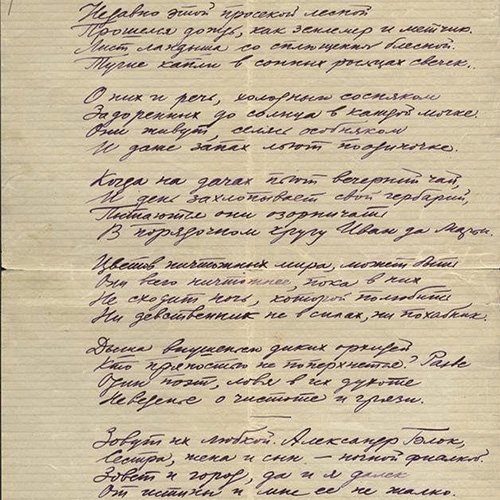 Недавно этой просекой лесной
Прошелся дождь, как землемер и метчик.
Лист ландыша со сплющенной блесной.
Тугие капли в сонных рыльцах свечек.
О них и речь, холодным сосняком
Задоренных до солнца в каждой мочке.
Они живут, селясь особняком
И даже запах льют поодиночке.
Когда на дачах пьют вечерний чай,
И день захлопывает свой гербарий,
Питаются они озорничая
В порядочном кругу Иван да Марьи.
Цветов ничтожных мира, может быть
Они всего ничтожнее, пока в них
Не сходит ночь, которой полюбить
Ни девственник не в силах, ни похабник.
Дыша внушеньем диких орхидей
Кто пряностью не поперхнется? Разве
Один поэт, ловя в их духоте
Неведенье о чистоте и грязи.
Зовут их любкой. Александр Блок,
Сестра, жена и сын — ночной фиалкой.
Зовет и город, да и я далек
От истины и мне ее не жалко.